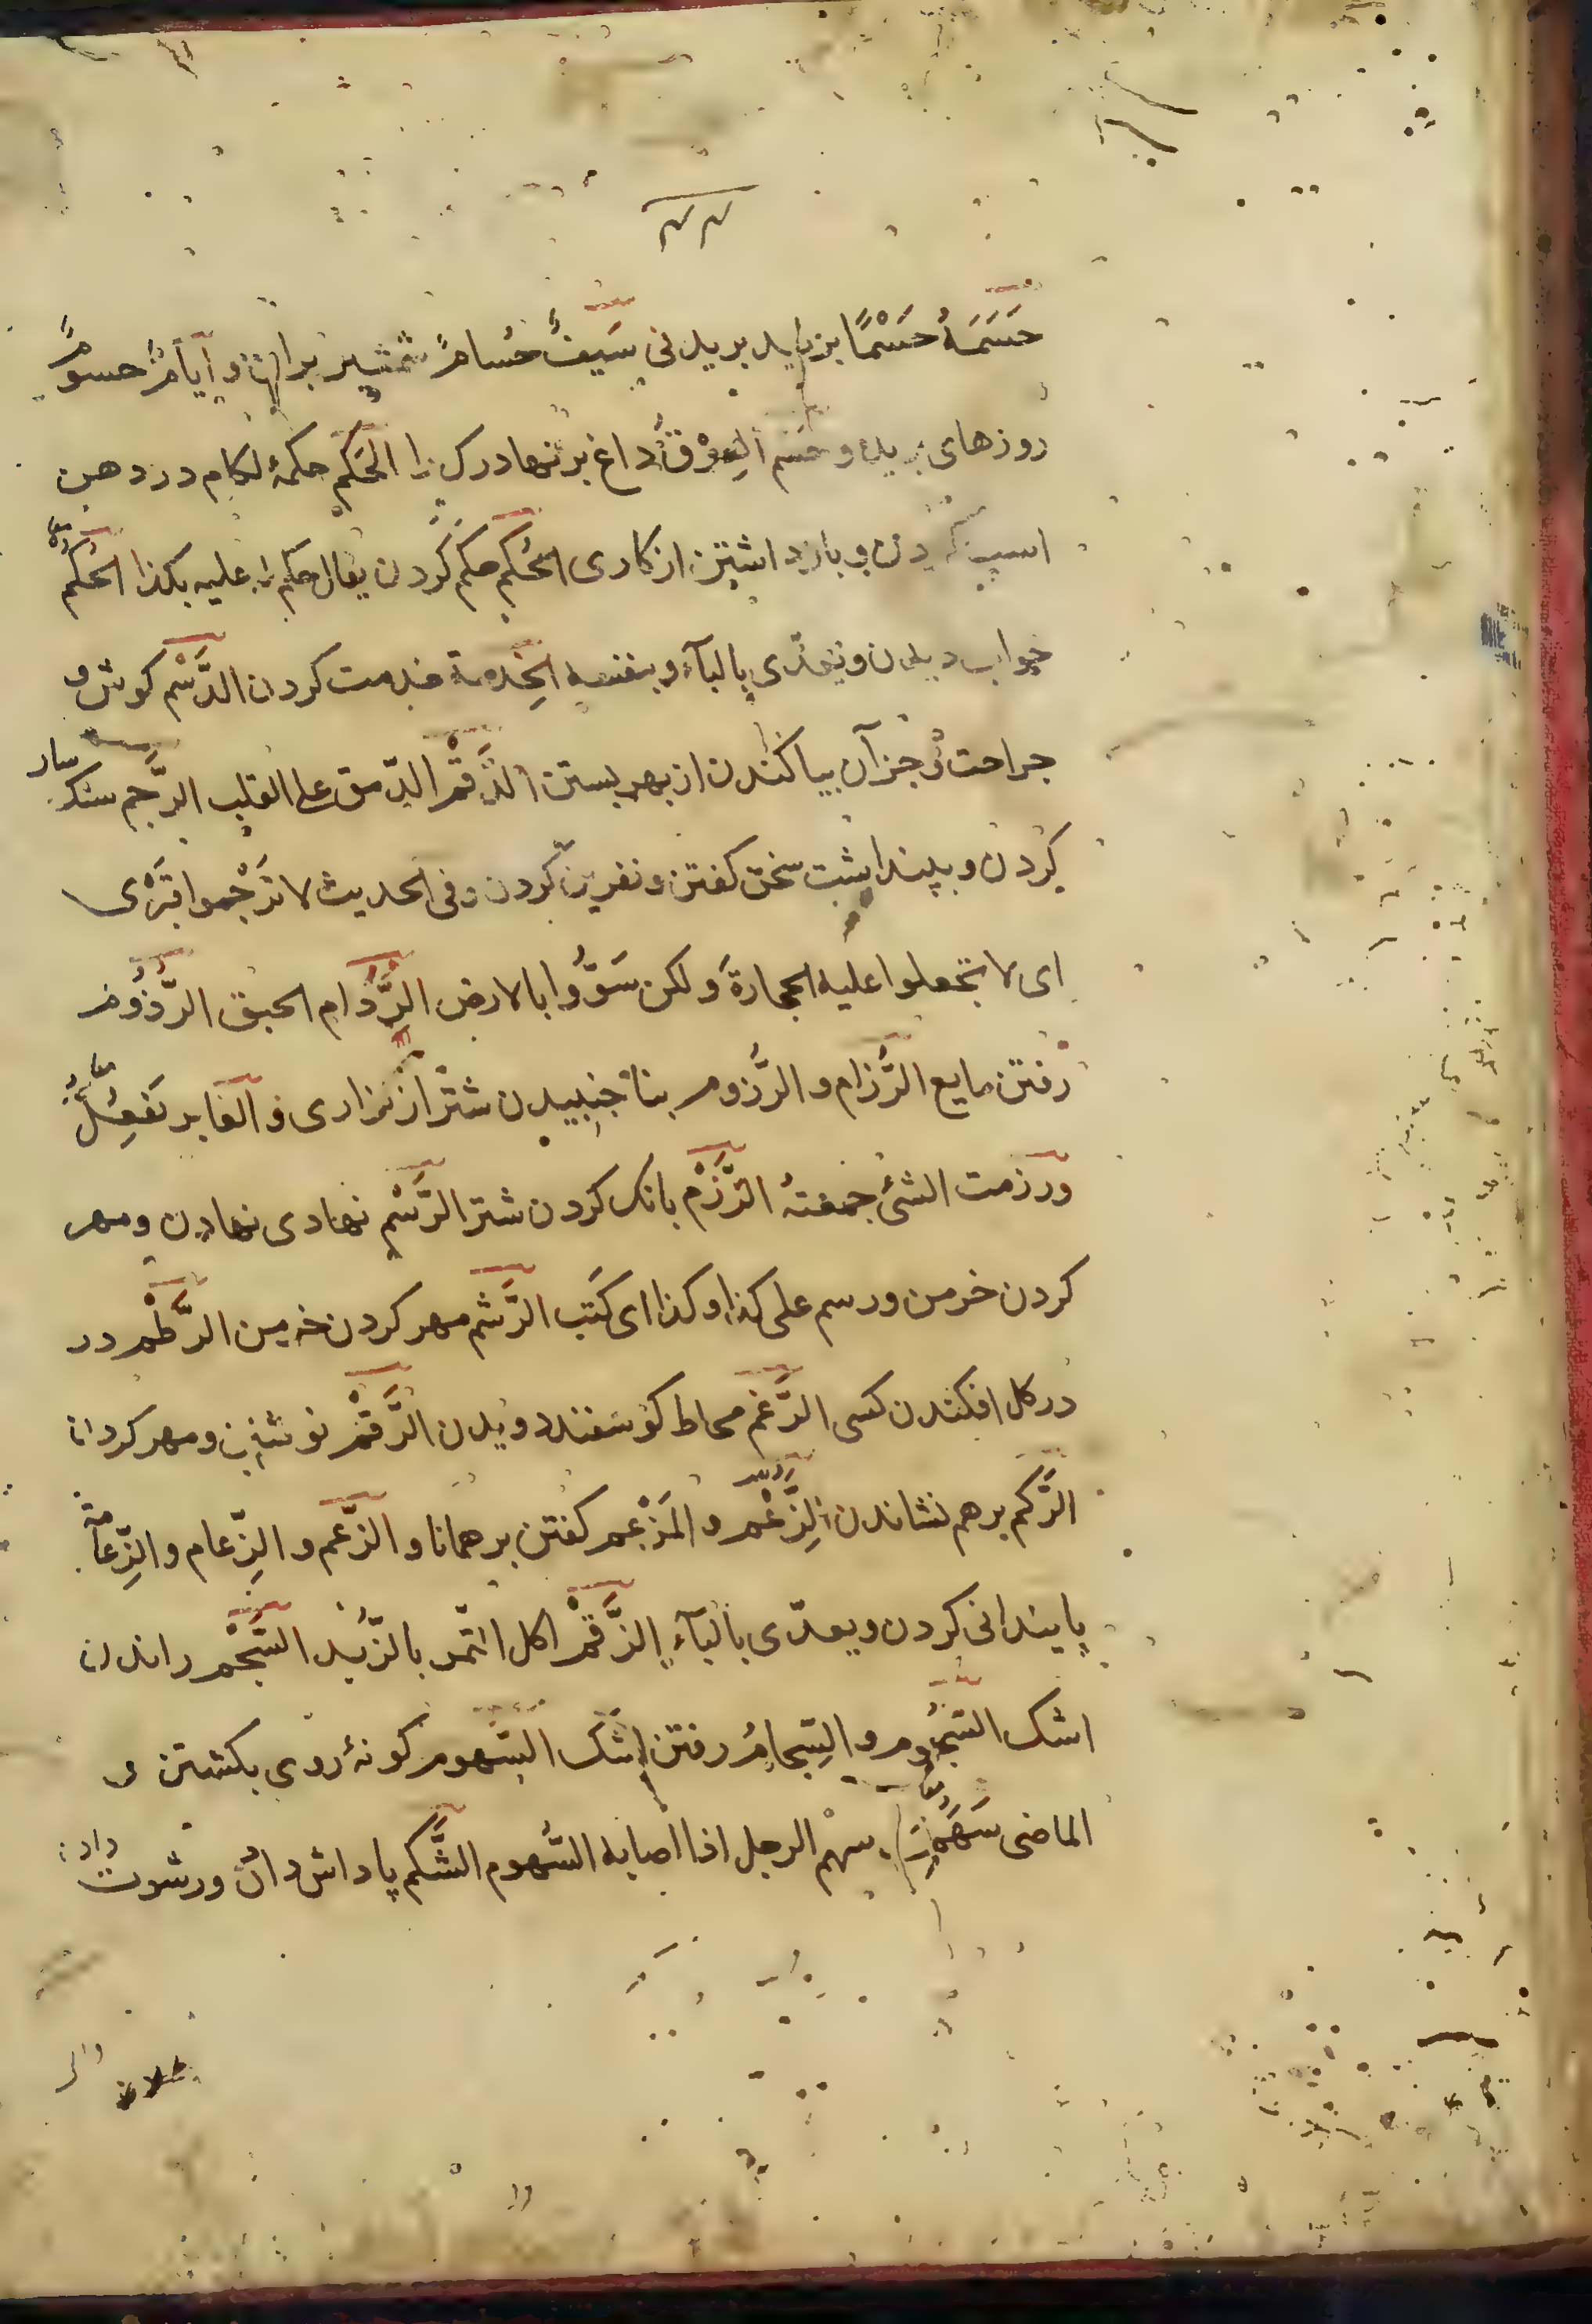 حَسَمَهُ حَسْمًا بریدنی سَیفٌ حُسامٌ شمشیر بران و أیّامٌ حسومًا
روزهای و حسم العِرْق داغ بر نهاد رک را الحَکم حکمهٔ لکام در دهن
اسب کردن و باز داشتن از کاری الحُکم حکم کردن یقال حکم له علیه بکذا الحُلم
خواب دیدن و یعدّی بالبآء و بنفسه الخِدمة خدمت کردن الدَّسْم کوش و
جراحت و جز آن بیاکندن از بهر بستن الدَّقْم الدّمق علی القلب الرَّجم سنکسار
کردن و بپنداشت سخن کفتن و نفرین کردن و فی الحدیث لا تَرْجُموا قبْری
ای لا تجعلوا علیه الحجارةَ و لکن سَوُّوا بالارض الرُّدام الحبق الرُّذُوم
رفتن مایع الرُّزام و الرُّزوم بنا جنبیدن شتر از نزاری و الغابر یَفعِلُ معا
ورزمت الشئ جمعتهُ الرَّزْم بانک کردن شتر الرَّسْم نهادی نهادن و مهر
کردن خرمن و رسم علی کذا و کذا ای کَتَب الرَّشم مهر کردن خرمن الرَّطْم در
در کل افکندن کسی الرَّغم مخاط کوسفند دویدن الرَّقْم نوشتن و مهر کردن
الرَّکم بر هم نشاندن الزَّعْم و المَزْعم کفتن بر همانا و الزَّعم و الزّعام و الزّعامة
پایندانی کردن و یعدّی بالبآء الزَّقْم اکل التّمر بالزُّبد السَّجْم راندن
اشک السُّجُوم و السِّجام رفتن اشک السُّهوم کونهٔ روی بکشتن و
الماضی سَهَُم معا سهم الرجل اذا اصابه السُّهوم الشَّکم پاداش دادن و رشوت دادن